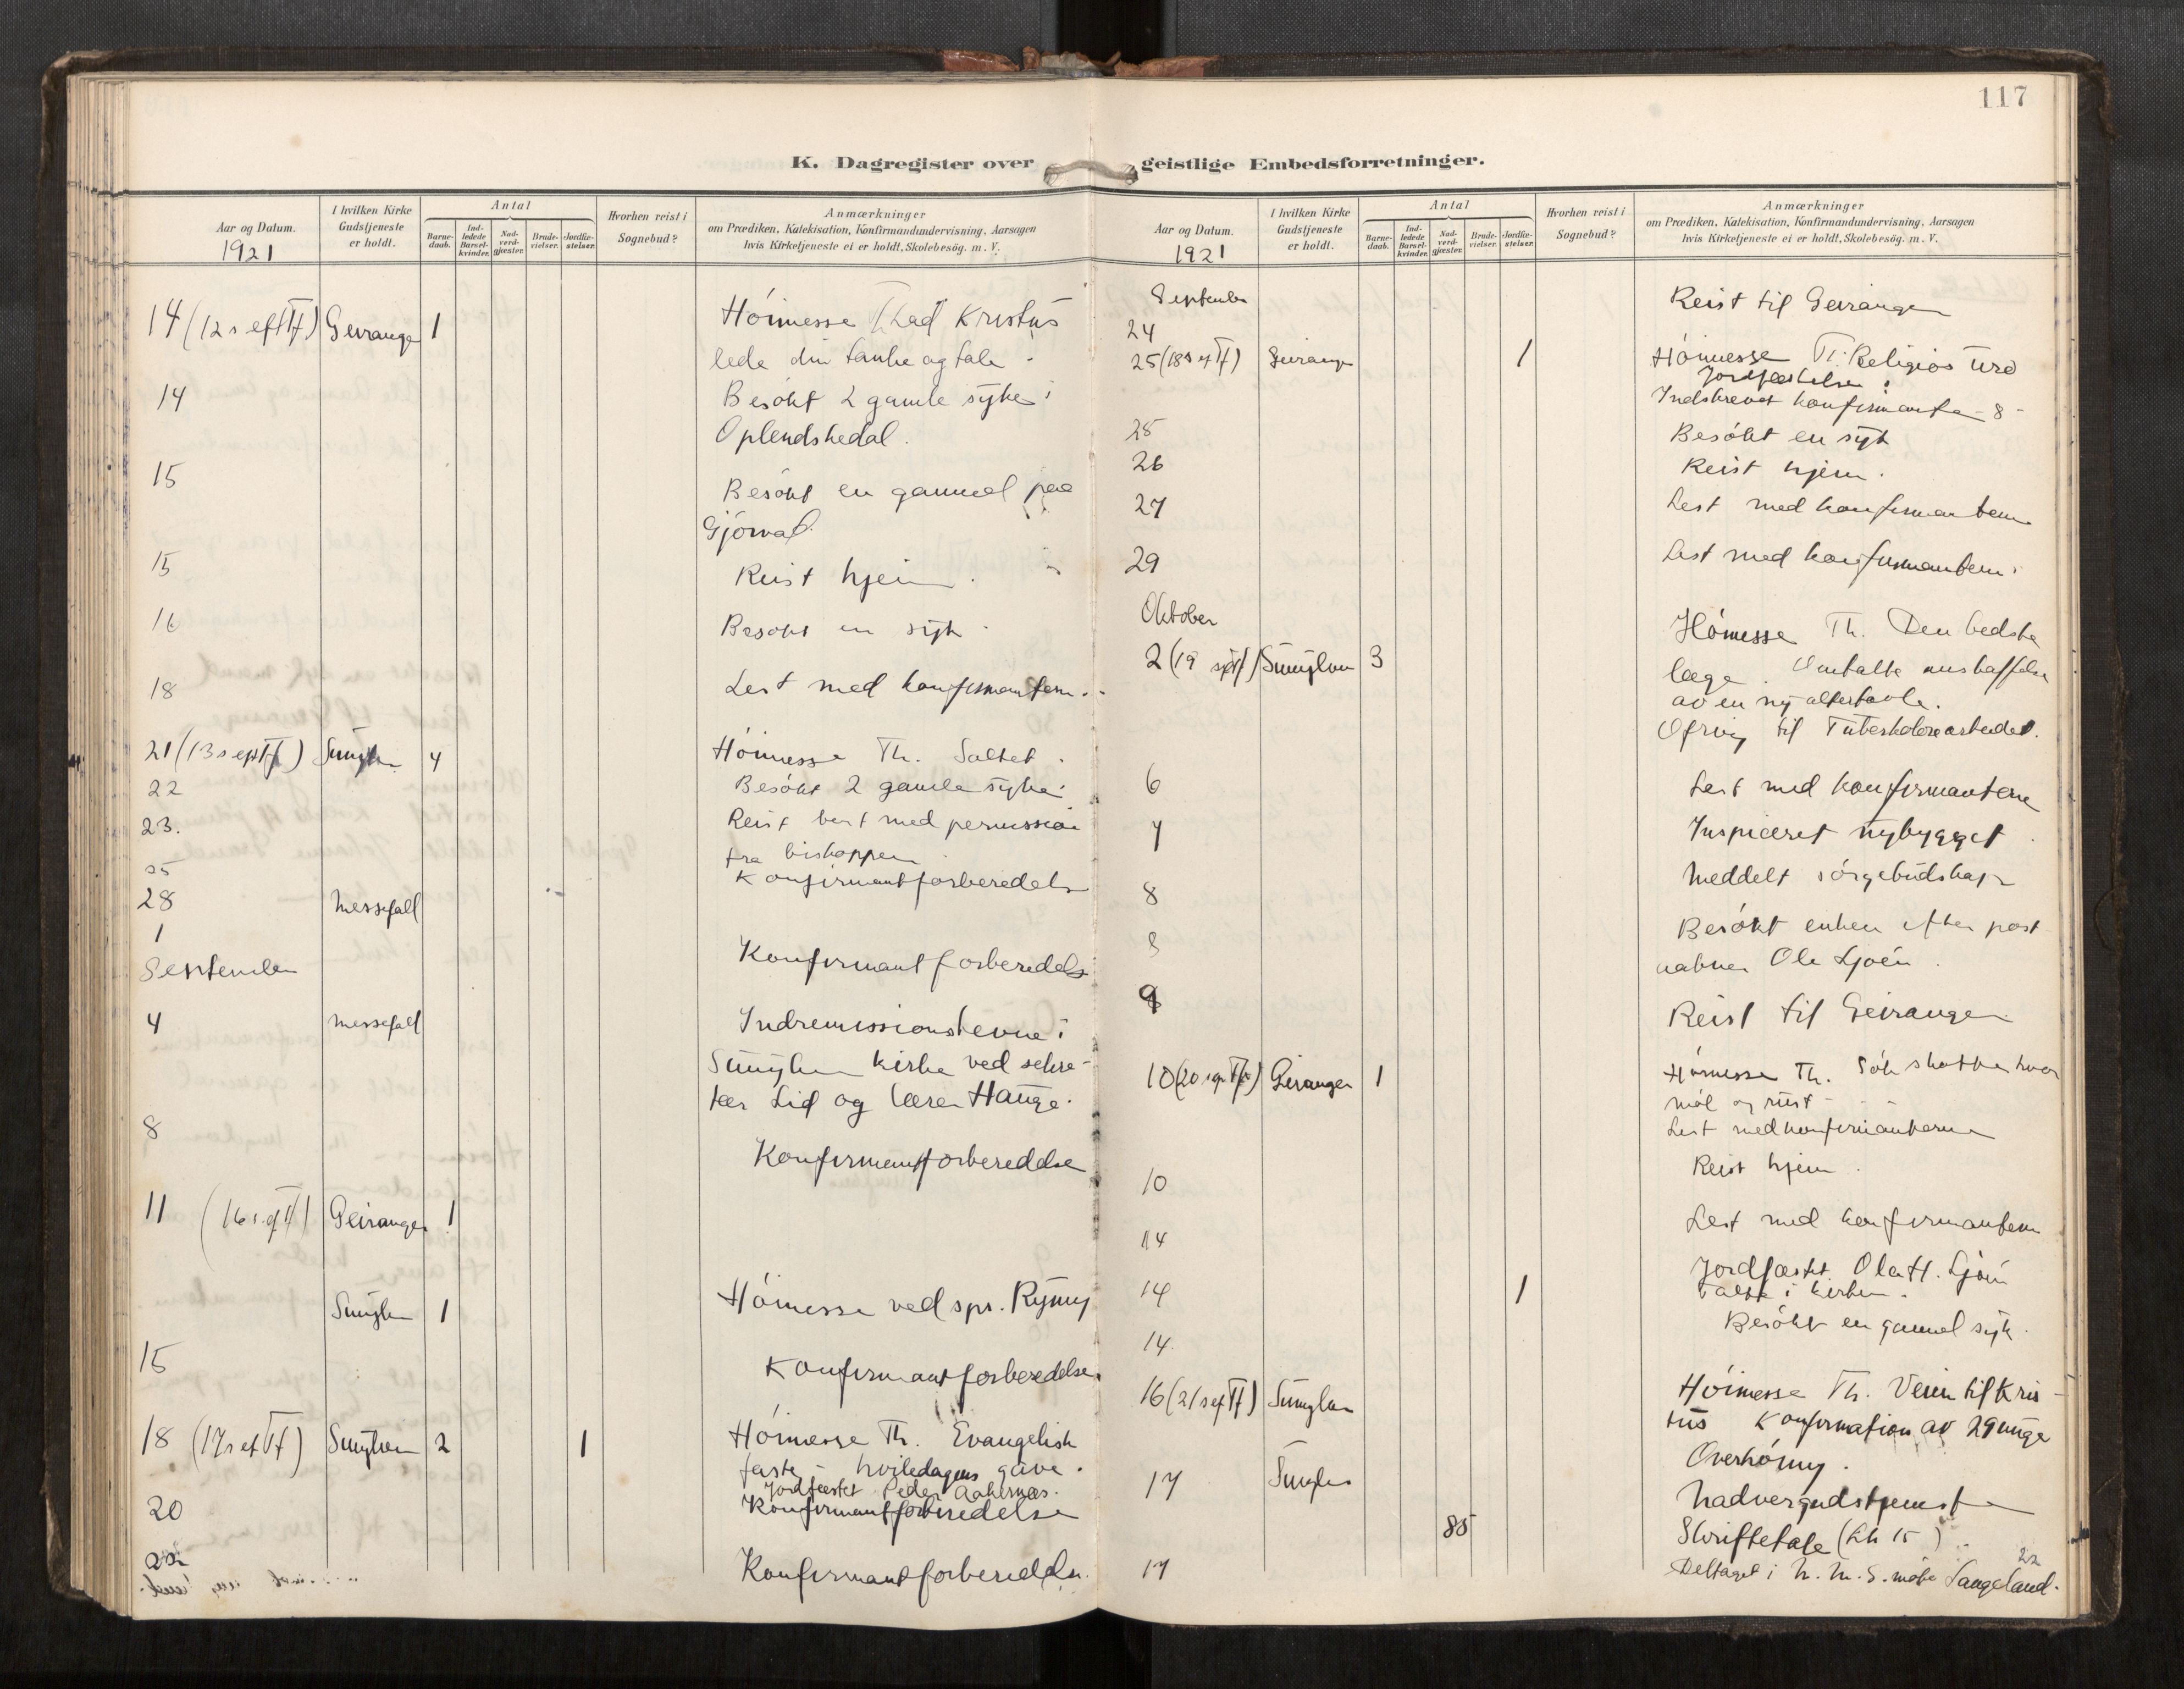 117
K. Dagregister over geistlige Embedsforretninger.
Aar og Datum.
1921
I hvilken Kirke Gudstjeneste er holdt.
Antal
Barne-daab.
Ind-ledede Barsel-kvinder.
Nad-verd-gjæster.
Brude-vielser.
Jordfæ-stelser.
Hvorhen reist i Sognebud?
Anmærkninger
om Prædiken, Katekisation, Konfirmandundervisning, Aarsagen
hvis Kirketjeneste ei er holdt, Skolebesög. m. V.
14 (12 s eft Tf) Geiranger 1 Höimesse Th Lad Kristus
lede din tanke og tale
14 Besökt 2 gamle syke i
Oplendskedal.
15 Besökt en gammel paa
Gjörval.
15 Reist hjem.
16 Besökt en syk
18 Lest med konfirmantene.
21 (13 s eft Tf) Sunylven 4 Höimesse Th. Saltet.
22 Besökt 2 gamle syke
23. Reist bort med permission
fra biskoppen
25 Konfirmantforberedelse
28 Messefall
1
September
Konfirmantforberedelse
4 messefall Indremissionstevne i
Sunylven kirke ved sekre-
tær Lid og lærer Hauge.
8 Konfirmantforberedelse
11 (16 s. ef Tf) Geiranger 1
Sunylven 1 Höimesse ved spr. Ryning
15 Konfirmantforberedelse
18 (17 s ef Tf) Sunylven 2 1 Höimesse Th. Evangelisk
faste - hviledagens gave.
Jordfæstet Peder Aakernæs.
20 Konfirmantforberedelse
22 Konfirmantforberedelse.
Aar og Datum.
1921
I hvilken Kirke Gudstjeneste er holdt.
Antal
Barne-daab.
Ind-ledede Barsel-kvinder.
Nad-verd-gjæster.
Brude-vielser.
Jordfæ-stelser.
Hvorhen reist i Sognebud?
Anmærkninger
om Prædiken, Katekisation, Konfirmandundervisning, Aarsagen
hvis Kirketjeneste ei er holdt, Skolebesög. m. V.
September
24 Reist til Geiranger
25 (18 s ef Tf) Geiranger 1 Höimesse Th: Religiös uro
Jordfæstelse
Indskrevet konfirmanter - 8 -
25 Besökt en syk
26 Reist hjem.
27 Lest med konfirmantene
29 Lest med konfirmantene
Oktober
2 (19 s ef Tf) Sunylven 3 Höimesse Th. Den bedste
læge. Omtalte anskaffelse
av en ny altertavle.
Ofring til Tuberkolosearbeidet.
6 Lest med konfirmantene
7 Inspiceret nybygget
8 Meddelt sörgebudskap
8 Besökt enken efter post
aabner Ole Ljoën.
9 Reist til Geiranger
10 (20 s ef Tf) Geiranger 1 Höimesse Th. Søk skatter hvor
möl og rust - -
Lest med konfirmanterne
10 Reist hjem.
14 Lest med konfirmantene
14 1 Jordfæstet Ola H. Ljoën
Talte i kirken.
14. Besökt en gammel syk.
16 (21 s ef Tf) Sunylven Höimesse Th. Veien til Kris-
tus Konfirmation av 29 unge
17 Sunylven Overhöring.
85 Nadvergudstjeneste
Skriftetale (Lk 15)
17 Deltaget i N. M. S. möte Langeland. 22